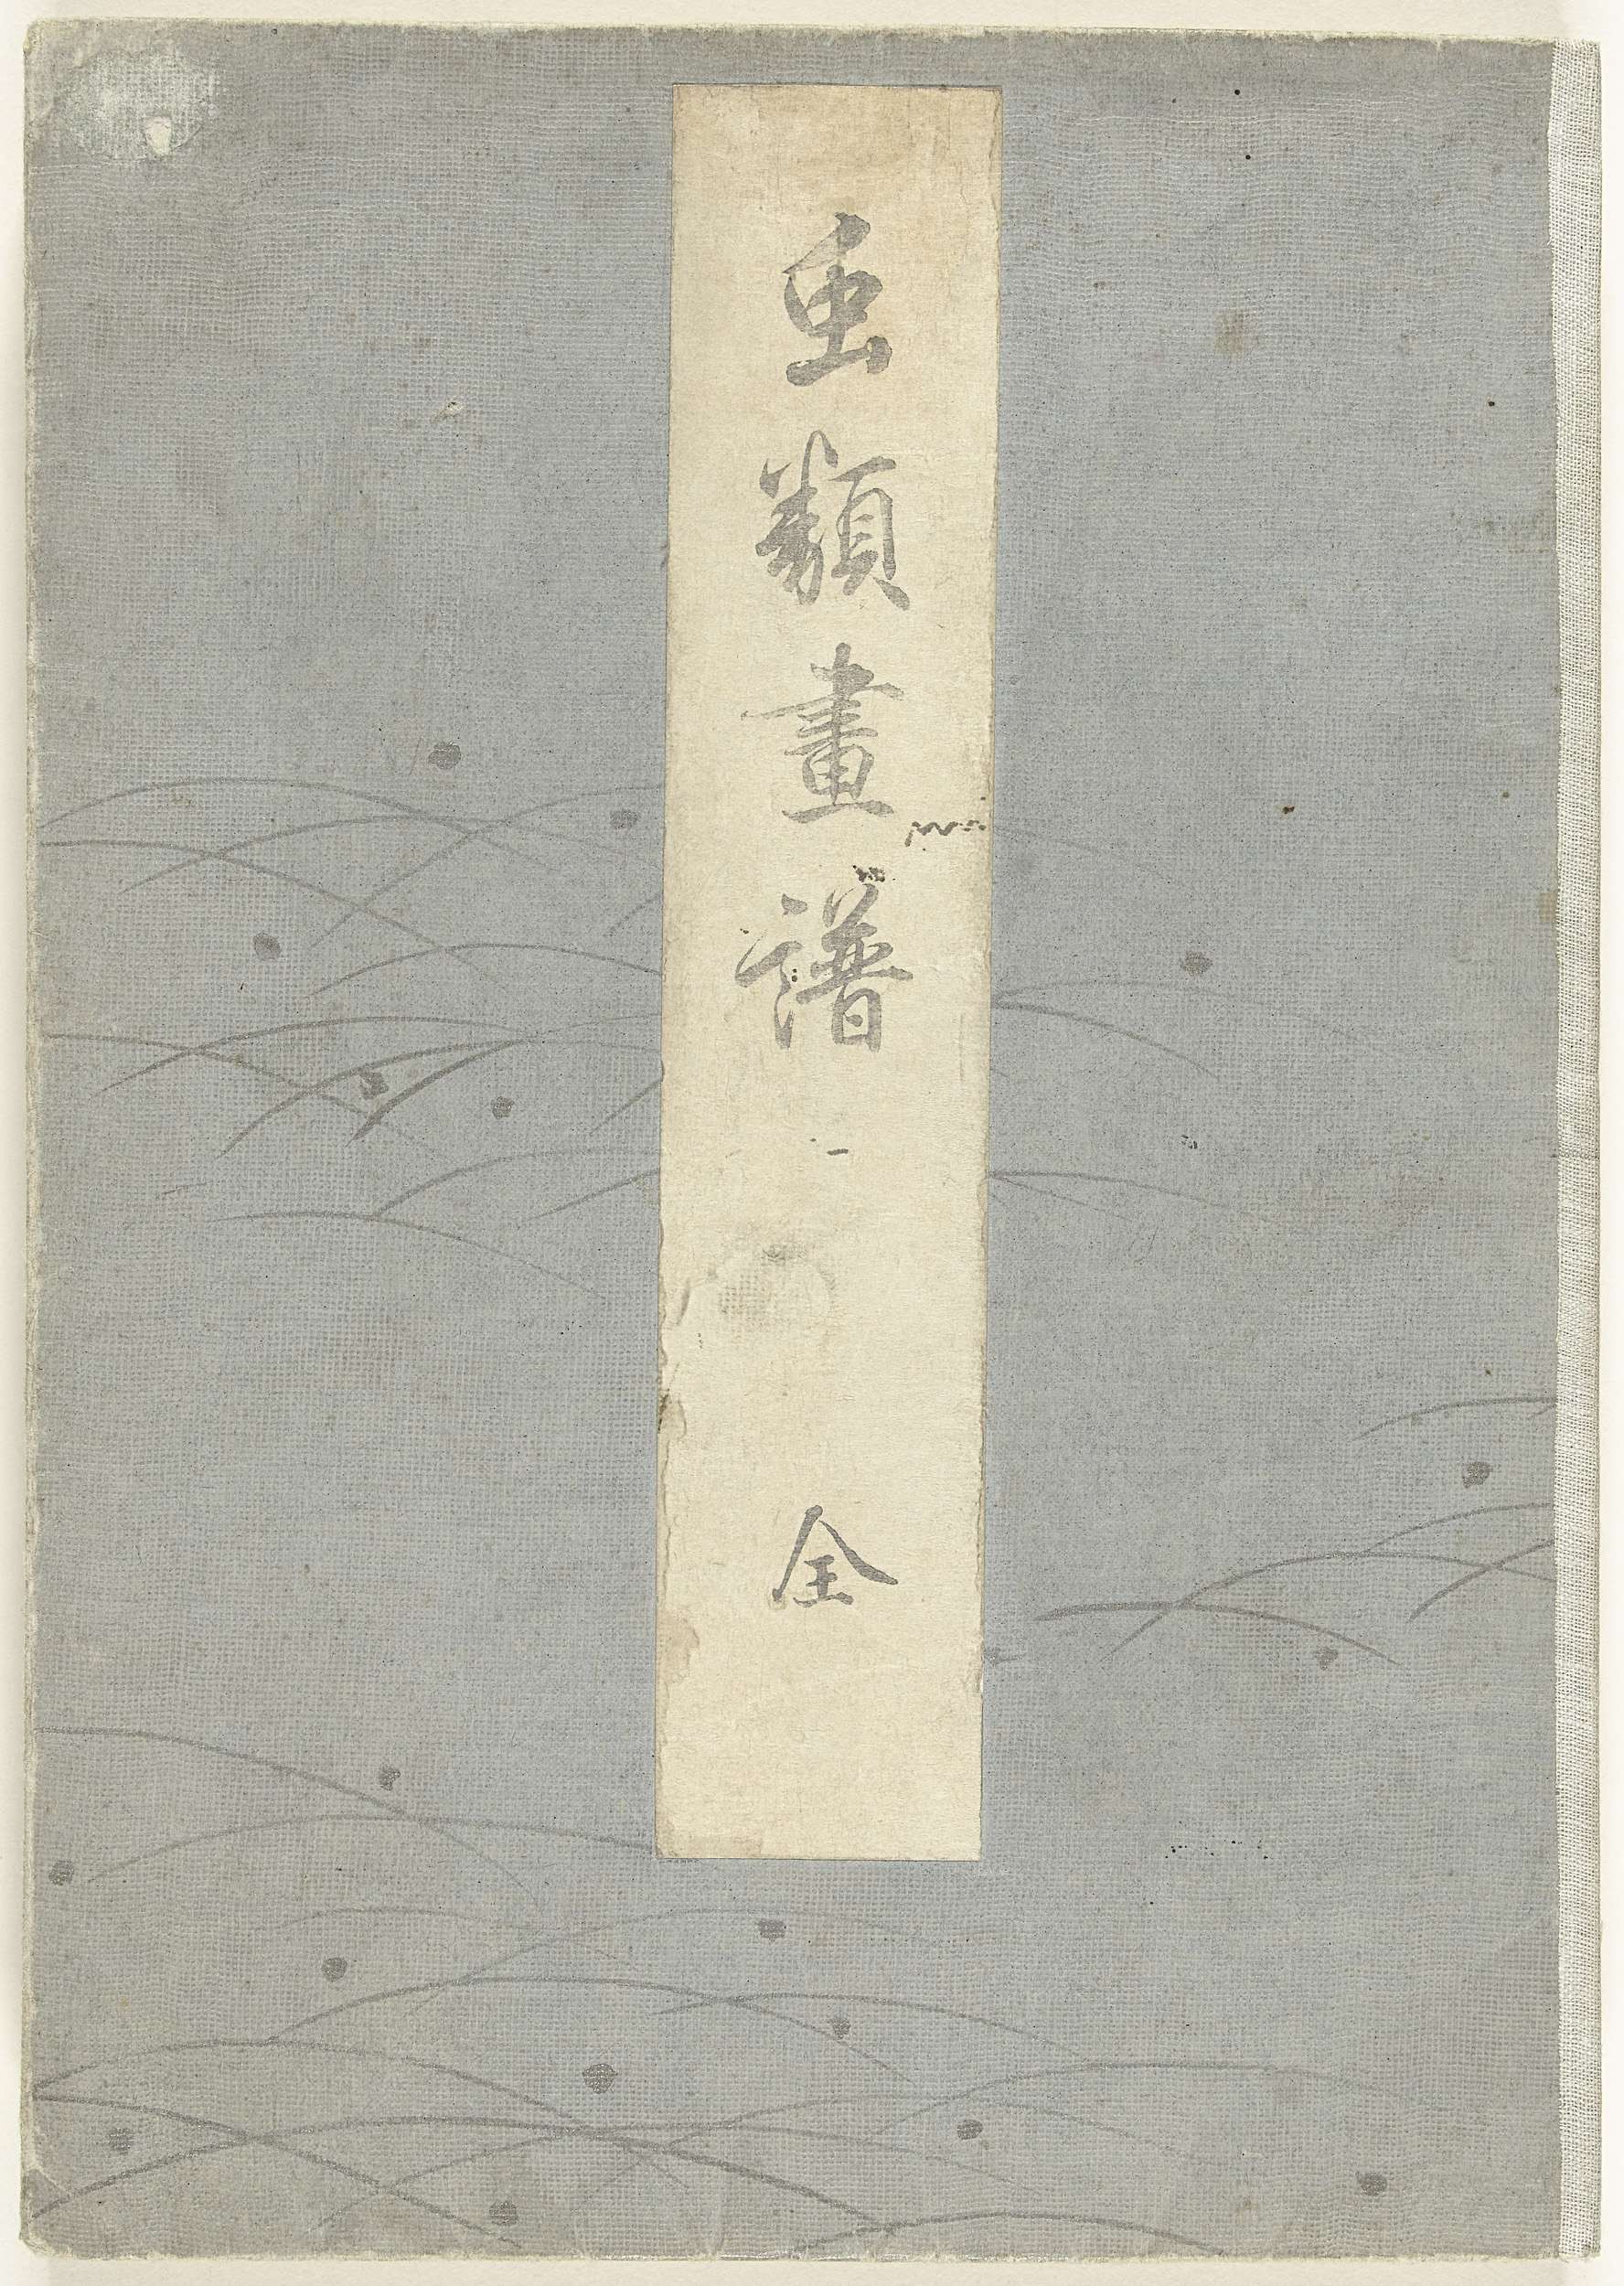 虫類畫譜
全